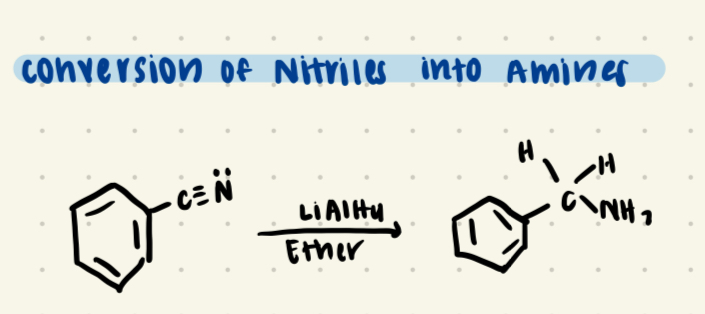 conversion of Nitriles into Amines
C≡N̈
LiAlH4
Ether
H
H
C
NH2